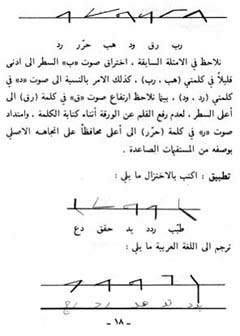 رب   رق   ود   هب   حرّر   رد
نلاحظ في الامثلة السابقة ، اختراق صوت «ب» السطر الى ادنى
قليلاً في كلمتي (هب ، رب) ، كذلك الامر بالنسبة الى صوت «د» في
كلمتي (رد ، ود) ، بينما نلاحظ ارتفاع «ق» في كلمة (رق) الى
أعلى السطر ، لعدم رفع القلم عن الورقة أثناء كتابة الكلمة ، وامتداد
صوت «ر» في كلمة (حرّر) الى أعلى محافظاً على اتجاهه الاصلي
بوصفه من المستقيمات الصاعدة .
تطبيق : اكتب بالاختزال ما يلي :
طبّب   ردد   يد   حقق   دع
ترجم الى اللغة العربية ما يلي :
– ١٨ –